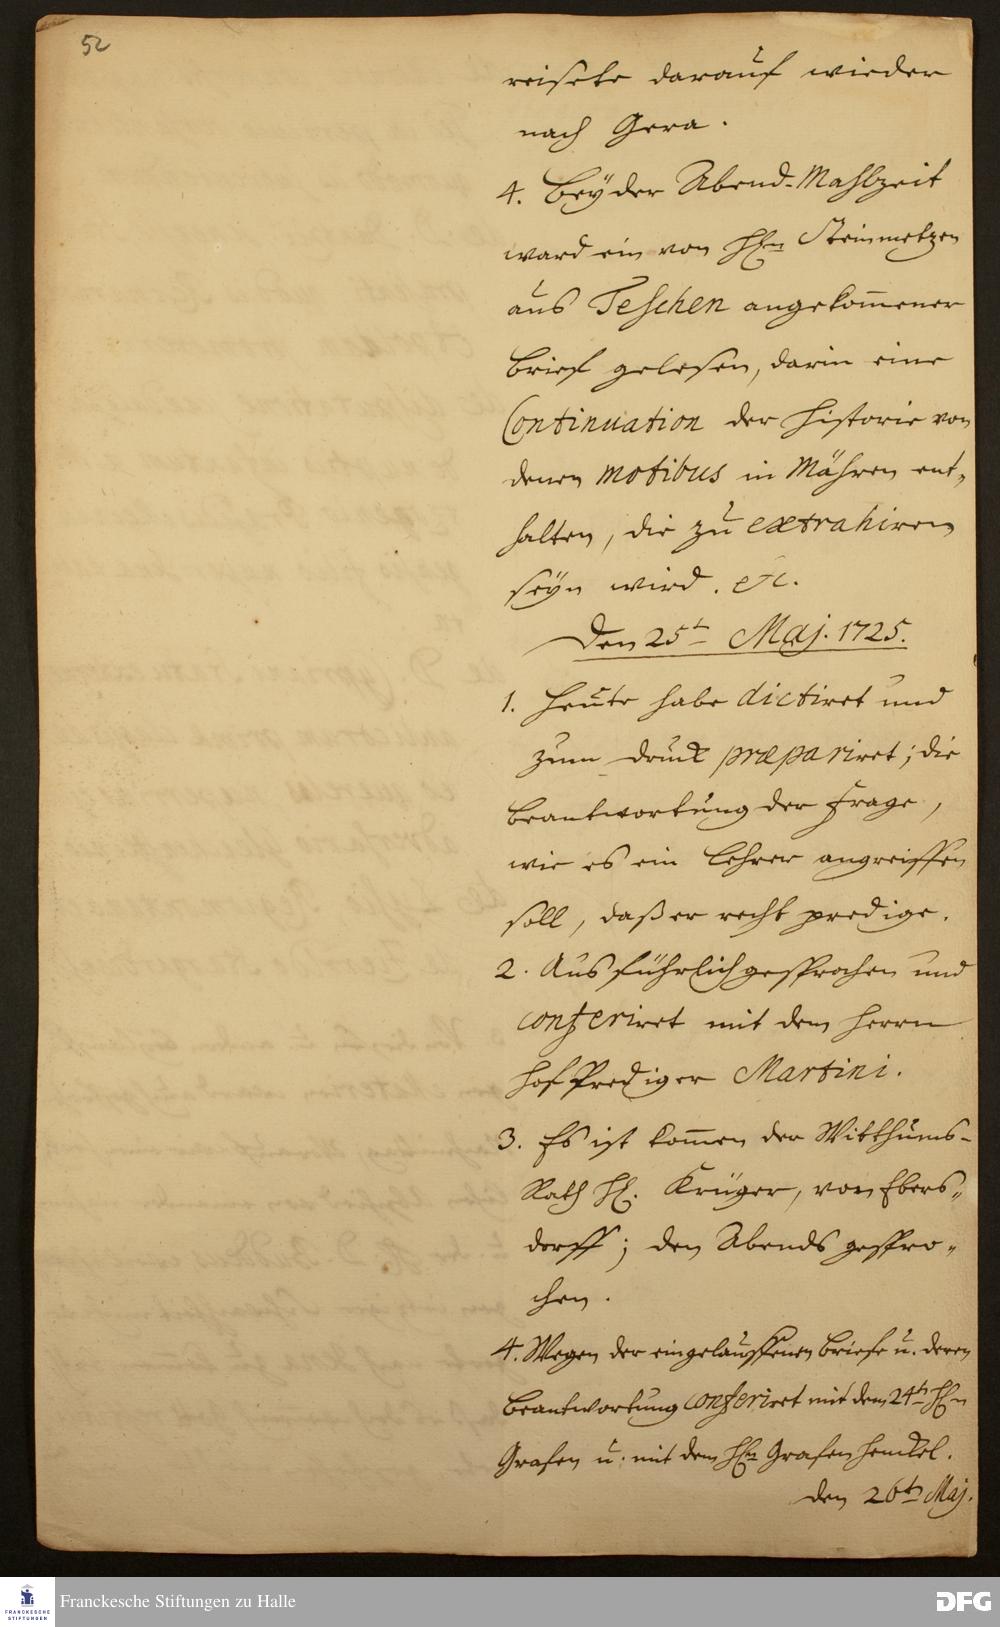 52
reisete darauf wieder
nach Gera.
4. Bey der Abend-Mahlzeit
ward ein von HE.n Steinmetzen
aus Teschen angekom̅ener
Brief gelesen, darin eine
Continuation der Historie von
denen motibus in Mähren ent-
halten, die zu extrahiren
seyn wird. etc.
Den 25t. Maj. 1725.
1. Heute habe dictiret und
zum Druck præpariret; die
Beantwortung der Frage,
wie es ein Lehrer angreiffen
soll, daß er recht predige.
2. Ausführlich gesprochen und
conferiret mit dem Herrn
HofPrediger Martini.
3. Es ist kom̅en der Witthums-
Rath HE. Krüger, von Ebers-
dorff; den Abends gespro-
chen.
4. Wegen der eingelauffenen Briefe u. deren
Beantwortung conferiret mit dem 24t. HE.n
Grafen u. mit dem HE.n Grafen Henckel.
den 26t. Maj.
Franckesche Stiftungen zu Halle
FRANCKESCHE
STIFTUNGEN
DFG